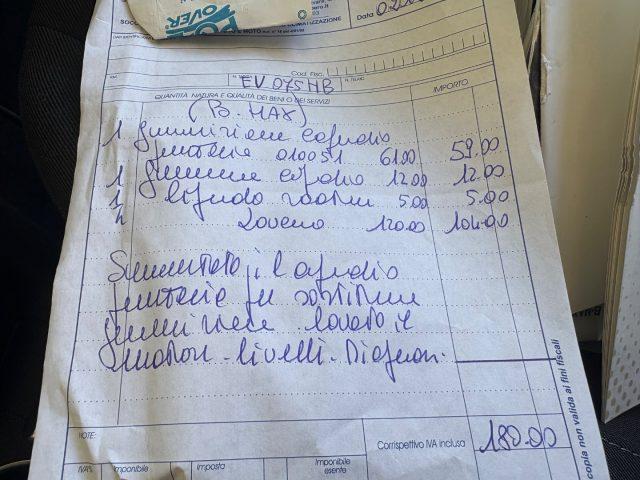 POL
OVER
SOCC
CLIMATIZZAZIONE
Data
Cod. Fisc.
KM.
N. TELAIO
EV 075HB
QUANTITÀ NATURA E QUALITÀ DEI BENI O DEI SERVIZI
IMPORTO
(B. MAX)
1 Guarnizione coperchio
punterie 010051 61.00 59.00
1 12.00 12.00
1 liquido 5.00 5.00
2 Lavoro 120.00 104.00
Smontato il coperchio
punterie per sostituire
guarnizione lavato il
motore. livelli. Diagnosi.
NOTE:
Corrispettivo IVA inclusa 180.00
IVA%
Imponibile
Imposta
Imponibile
esente
copia non valida ai fini fiscali